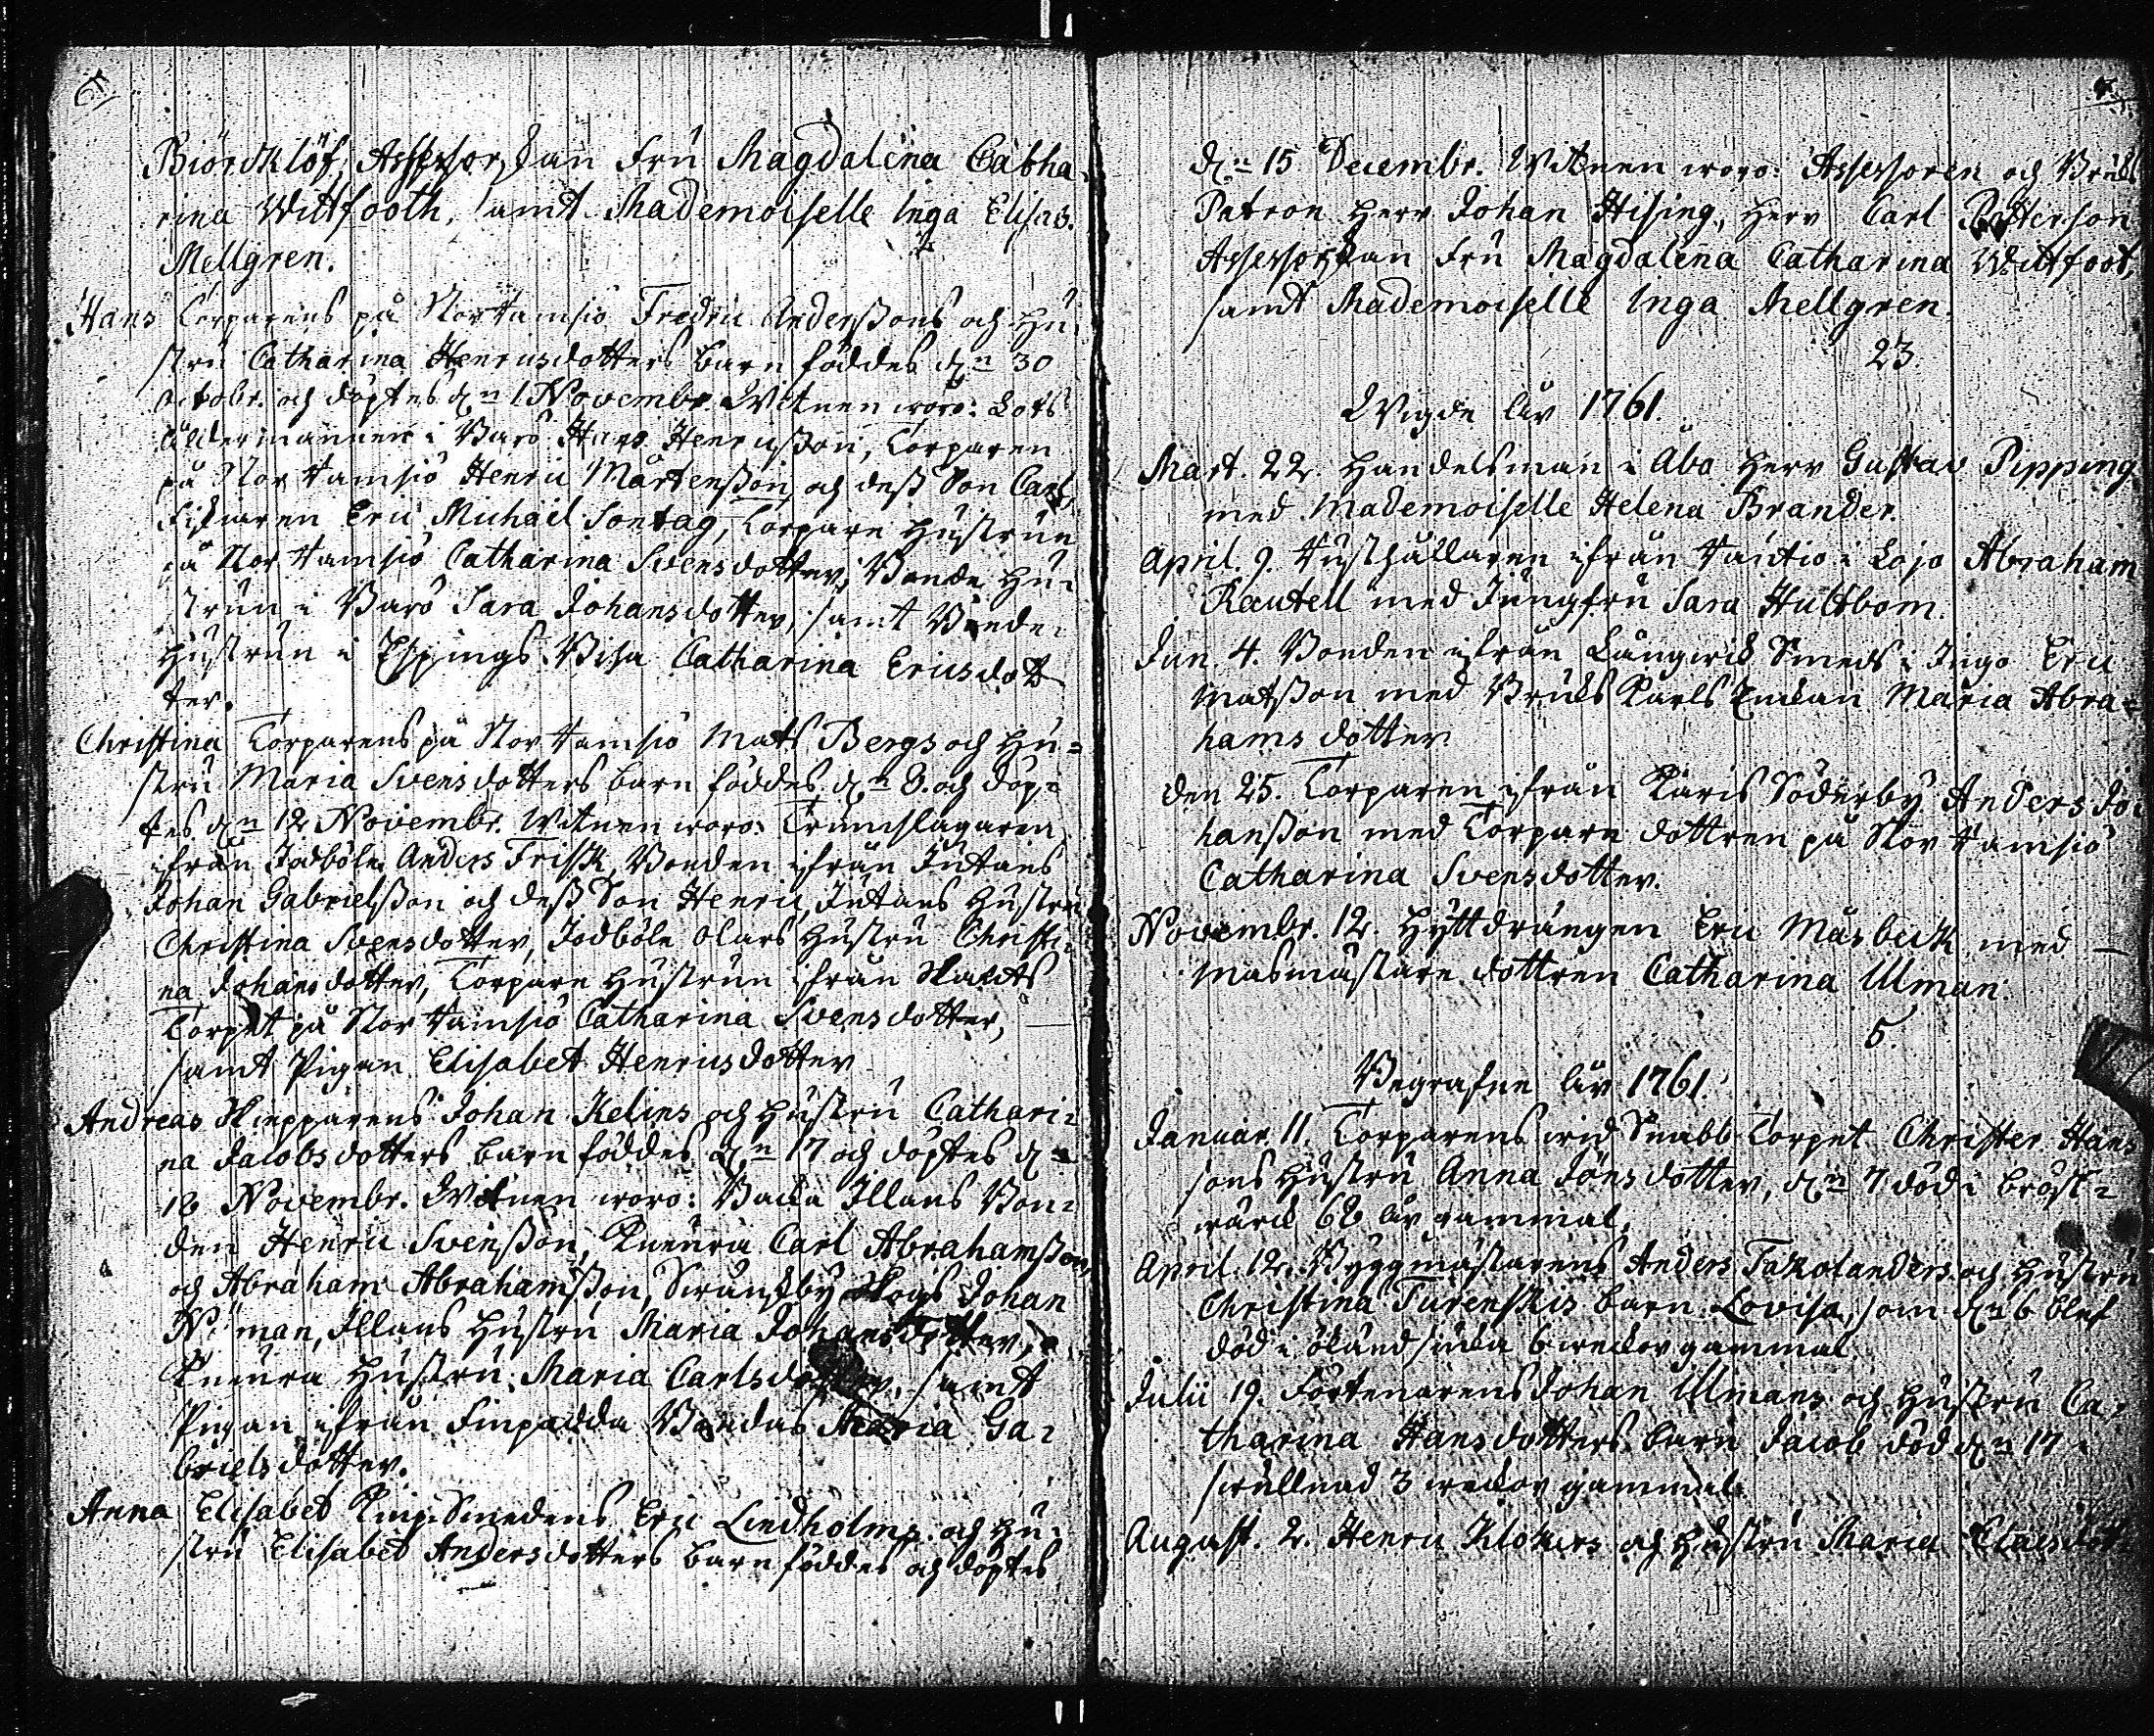 Biörcklöf, Assessorskan Fru Magdalena Catha-
rina Wittfooth, samt Mademoiselle Inga Elisab.
Mellgren.
Hans Torparens på Stor Ramsiö Fredric Anderssons och Hu-
stru Catharina Henricsdotters barn föddes d:n 30
Octobr. och döptes d:n 1 Novembr. Witnen woro: Lots
Åldermannen i Barö Hans Henricsson, Torparen
på Stor Ramsiö Henric Mårtensson och dess Son Carl,
Fiskaren Eric Michael Sontag, Torpare Hustrun
på Stor Ramsiö Catharina Svensdotter, Bonde Hu-
strun i Barö Sara Johansdotter, samt Bonde
Hustrun i Espings Catharina Ericsdot-
ter.
Christina Torparens på Stor Ramsiö Mats Bergs och Hu-
stru Maria Svensdotters barn föddes d:n 8. och döp-
tes d:n 12 Novembr. Witnen woro: Trumslagaren
ifrån Jodböle Anders Frisk, Bonden ifrån Jutans
Johan Gabrielsson och dess Son Henric, Jutans Hustru
Christina Svensdotter, Jodböle Olars Hustru Christi-
na Johansdotter, Torpare Hustrun ifrån
Torpet på Stor Ramsiö Catharina Svensdotter,
samt Pigan Elisabet Henricsdotter
Andreas Skepparens Johan Kelins och Hustru Cathari-
na Jacobsdotters barn föddes d:n 17 och döptes d:n
18 Novembr. Witnen woro: Backa Illans Bon-
den Henric Svensson, Carl Abrahamsson,
och Abraham Abrahamsson, Svanskby Skogs Johan
man, Illans Hustru Maria Johansdotter,
Hustru Maria Carlsdotter, samt
Pigan ifrån Finpadda Maria Ga-
brielsdotter.
Anna Elisabet Knip Smedens Eric Lindholms och Hu-
stru Elisabet Andersdotters barn föddes och döptes
d:n 15 Decembr. Witnen woro: Assessoren och Bruks
Patron Herr Johan Hising, Herr Carl Petterson
Assessorskan Fru Magdalena Catharina Wittfoot,
samt Mademoiselle Inga Mellgren.
23.
Wigde åhr 1761.
Mart. 22. Handelsman i Åbo Herr Gustav Pipping
med Mademoiselle Helena Brander.
April. 9. Rusthållaren ifrån i Lojo Abraham
Reutell med Jungfru Sara Hultbom.
Jun. 4. Bonden ifrån Långwik Smeds i Ingo Eric
Matsson med Bruks Karls Enkan Maria Abra-
hamsdotter.
den 25. Torparen ifrån Karis Söderby Anders Jo-
hansson med Torpare dottren på Stor Ramsiö
Catharina Svensdotter.
Novembr. 12. Hyttdrängen Eric Måsbeck med
Masmästare dottren Catharina Ulman.
5.
Begrafne åhr 1761.
Januar. 11. Torparens wid Snabb Torpet Christer Hans
sons Hustru Anna Jönsdotter, d:n 7 död i bröst-
wärk 68 åhr gammal.
April. 12. Byggmästarens Anders Takolanders och Hustru
Christina Turenskis barn Lovisa, som d:n 6 blef
död i okänd siuka 6 weckor gammal
Julii 19. Förtenarens Johan Ulmans och Hustru Ca-
tharina Hansdotters barn Jacob död d:n 17 i
swullnad 3 weckor gammal.
August. 2. Henric Klockars och Hustru Maria Claesdot-